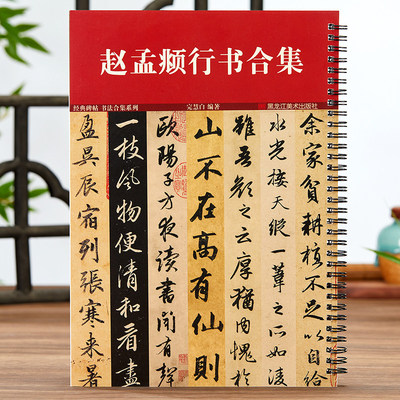 赵孟頫行书合集
经典碑帖 书法合集系列
完慧白 编著
黑龙江美术出版社
余家貧耕植不足以自給
水光接天縱一葦之所如凌
雖吾顏之云厚猶内愧於
山不在高有仙則
歐陽子方夜讀書聞有聲
一枝風物便清和看盡
盈昃辰宿列張寒来暑